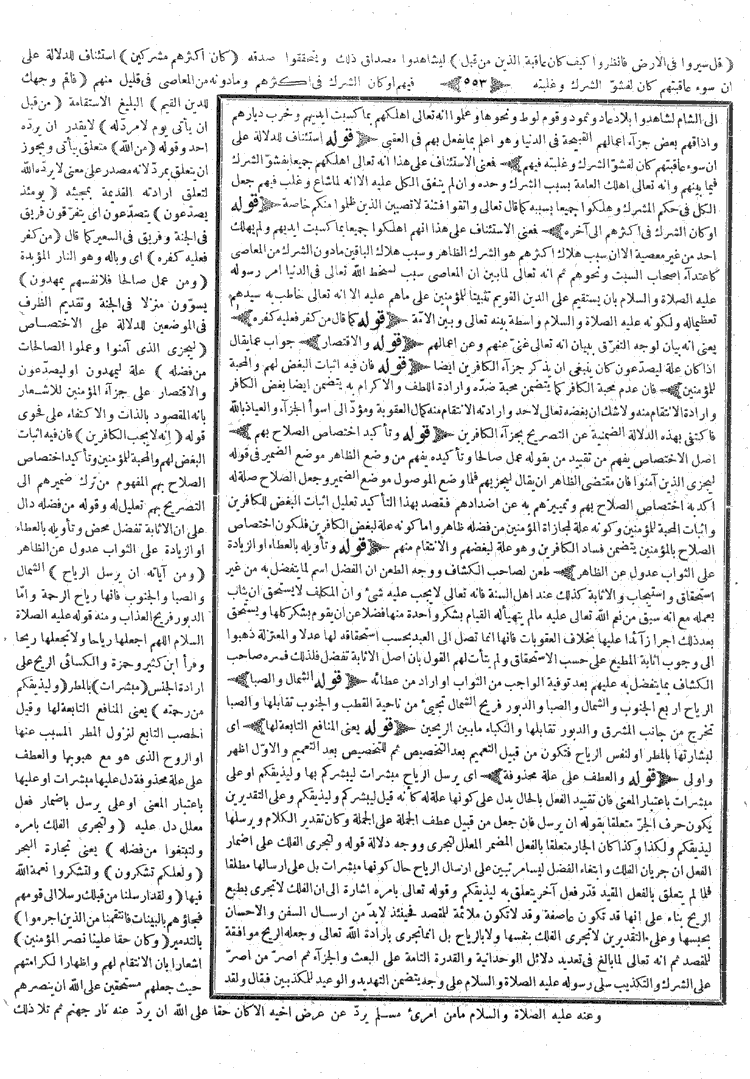 ﴿ قل سيروا فى الارض فانظروا كيف كان عاقبة الذين من قبل ﴾ ليشاهدوا مصداق ذلك ويتحققوا صدقه ﴿ كان اكثرهم مشركين ﴾ استئناف للدلالة على
ان سوء عاقبتهم كان لفشو الشرك وغلبته ٥٥٣ فيهم او كان الشرك فى اكثرهم ومادونه من المعاصى فى قليل منهم ﴿ فاقم وجهك
للدين القيم ﴾ البليغ الاستقامة ﴿ من قبل
ان يأتى يوم لا مردله ﴾ لايقدر ان يرده
احد وقوله ﴿ من الله ﴾ متعلق بيأتى ويجوز
ان يتعلق بمرد لانه مصدر على معنى لا يرده الله
لتعلق ارادته القديمة بمجيئه ﴿ يومئذ
يصدعون ﴾ يتصدعون اى يتفرقون فريق
فى الجنة وفريق فى السعير كما قال ﴿ من كفر
فعليه كفره ﴾ اى وباله وهو النار المؤبدة
﴿ ومن عمل صالحا فلانفسهم يمهدون ﴾
يسوون منزلا فى الجنة وتقديم الظرف
فى الموضعين للدلالة على الاختصاص
﴿ ليجزى الذى آمنوا وعملوا الصالحات
من فضله ﴾ علة ليمهدون او ليصدعون
والاقتصار على جزآء المؤمنين للاشعار
بانه المقصود بالذات والاكتفاء على فحوى
قوله ﴿ انه لايحب الكافرين ﴾ فان فيه اثبات
البغض لهم والمحبة للمؤمنين وتأكيد اختصاص
الصلاح بهم المفهوم من ترك ضميرهم الى
التصريح بهم تعليل له وقوله من فضله دال
على ان الاثابة تفضل محض وتأويله بالعطاء
او الزيادة على الثواب عدول عن الظاهر
﴿ ومن آياته ان يرسل الرياح ﴾ الشمال
والصبا والجنوب فانها رياح الرحمة واما
الدبور فريح العذاب ومنه قوله عليه الصلاة
السلام اللهم اجعلها رياحا ولاتجعلها ريحا
وقرأ ابن كثير وحمزة والكسائى الريح على
ارادة الجنس ﴿ مبشرات ﴾ بالمطر ﴿ وليذيقكم
من رحمته ﴾ يعنى المنافع التابعة لها وقيل
الخصب التابع لنزول المطر المسبب عنها
او الروح الذى هو مع هبوبها والعطف
على علة محذوفة دل عليها مبشرات او عليها
باعتبار المعنى او على يرسل باضمار فعل
معلل دل عليه ﴿ ولتجرى الفلك بامره
ولتبتغوا من فضله ﴾ يعنى تجارة البحر
﴿ ولعلكم تشكرون ﴾ ولتشكروا نعمة الله
فيها ﴿ ولقد ارسلنا من قبلك رسلا الى قومهم
فجاؤهم بالبينات فانتقمنا من الذين اجرموا ﴾
بالتدمير ﴿ وكان حقا علينا نصر المؤمنين ﴾
اشعارا بان الانتقام لهم واظهارا لكرامتهم
حيث جعلهم مستحقين على الله ان ينصرهم
وعنه عليه الصلاة والسلام مامن امرئ مسلم يرد عن عرض اخيه الا كان حقا على الله ان يرد عنه نار جهنم ثم تلا ذلك
الى الشام لشاهدوا بلاد عاد وثمود وقوم لوط ونحوها وعلموا انه تعالى اهلكهم بما كسبت ايديهم وخرب ديارهم
واذاقهم بعض جزآء اعمالهم القبيحة فى الدنيا وهو اعلم بما يفعل بهم فى العقبى ﴿ قوله استئناف للدلالة على
ان سوء عاقبتهم كان لفشو الشرك وغلبته فيهم ﴾ فمعنى الاستئناف على هذا انه تعالى اهلكهم جميعا بفشو الشرك
فيما بينهم وانه تعالى اهلك العامة بسبب الشرك وحده وان لم يتفق الكل عليه الا انه لما شاع وغلب فيهم جعل
الكل فى حكم المشرك وهلكوا جميعا بسببه كما قال تعالى واتقوا فتنة لاتصيبن الذين ظلموا منكم خاصة ﴿ قوله
او كان الشرك فى اكثرهم الى آخره ﴾ فمعنى الاستئناف على هذا انهم اهلكوا جميعا بما كسبت ايديهم ولم يهلك
احد من غير معصية الا ان سبب هلاك اكثرهم هو الشرك الظاهر وسبب هلاك الباقين مادون الشرك من المعاصى
كاعتدآء اصحاب السبت ونحوهم ثم انه تعالى لما بين ان المعاصى سبب لسخط الله تعالى فى الدنيا امر رسوله
عليه الصلاة والسلام بان يستقيم على الدين القويم تثبيتا للمؤمنين على ماهم عليه الا انه تعالى خاطب به سيدهم
تعظيما له ولكونه عليه الصلاة والسلام واسطة بينه تعالى وبين الامة ﴿ قوله كما قال من كفر فعليه كفره ﴾
يعنى انه بيان لوجه التفرق ببيان انه تعالى غنى عنهم وعن اعمالهم ﴿ قوله والاقتصار ﴾ جواب عما يقال
اذا كان علة ليصدعون كان ينبغى ان يذكر جزآء الكافرين ايضا ﴿ قوله فان فيه اثبات البغض لهم والمحبة
للمؤمنين ﴾ فان عدم محبة الكافر كما يتضمن محبة ضده وارادة اللطف والاكرام به يتضمن ايضا بغض الكافر
وارادة الانتقام منه ولاشك ان بغضه تعالى لاحد وارادته الانتقام منه كمال العقوبة ومؤد الى اسوأ الجزآء والعياذ بالله
فاكتفى بهذه الدلالة الضمنية عن التصريح بجزآء الكافرين ﴿ قوله وتأكيد اختصاص الصلاح بهم ﴾
اصل الاختصاص يفهم من تقييد من بقوله عمل صالحا وتأكيده يفهم من وضع الظاهر موضع الضمير فى قوله
ليجزى الذين آمنوا فان مقتضى الظاهر ان يقال ليجزيهم فلما وضع الموصول موضع الضمير وجعل الصلاح صلة له
اكد به اختصاص الصلاح بهم وتمييزهم به عن اضدادهم فقصد بهذا التأكيد تعليل اثبات البغض للكافرين
واثبات المحبة للمؤمنين وكونه علة لمجازاة المؤمنين من فضله ظاهر واما كونه علة لبغض الكافرين فلكون اختصاص
الصلاح بالمؤمنين يتضمن فساد الكافرين وهو علة لبغضهم والانتقام منهم ﴿ قوله وتأويله بالعطاء او الزيادة
على الثواب عدول عن الظاهر ﴾ طعن لصاحب الكشاف ووجه الطعن ان الفضل اسم لما يتفضل به من غير
استحقاق واستيجاب والاثابة كذلك عند اهل السنة فانه تعالى لايجب عليه شئ وان المكلف لايستحق ان يثاب
بعمله مع انه سبق من نعم الله تعالى عليه مالم يتهيأله القيام بشكر واحدة منها فضلا عن ان يقوم بشكر كلها ويستحق
بعد ذلك اجرا زآئدا عليها بخلاف العقوبات فانها انما تصل الى العبد بحسب استحقاقه لها عدلا والمعتزلة ذهبوا
الى وجوب اثابة المطيع على حسب الاستحقاق ولم يتأت لهم القول بان اصل الاثابة تفضل فلذلك فسره صاحب
الكشاف بما يتفضل به عليهم بعد توفية الواجب من الثواب او اراد من عطائه ﴿ قوله الشمال والصبا ﴾
الرياح اربع الجنوب والشمال والصبا والدبور فريح الشمال تجيئ من ناحية القطب والجنوب تقابلها والصبا
تخرج من جانب المشرق والدبور تقابلها والنكباء مابين الريحين ﴿ قوله يعنى المنافع التابعة لها ﴾ اى
لبشارتها بالمطر او لنفس الرياح فتكون من قبيل التعميم بعد التخصيص ثم للتخصيص بعد التعميم والاول اظهر
واولى ﴿ قوله والعطف على علة محذوفة ﴾ اى يرسل الرياح مبشرات ليبشركم بها وليذيقكم او على
مبشرات باعتبار المعنى فان تقييد الفعل بالحال يدل على كونها علة له كأنه قيل ليبشركم وليذيقكم وعلى التقديرين
يكون حرف الجر متعلقا بقوله ان يرسل فان جعل من قبيل عطف الجملة على الجملة وكان تقدير الكلام ويرسلها
ليذيقكم ولكذا وكذا كان الجار متعلقا بالفعل المضمر المعلل لتجرى ووجه دلالة قوله ولتجرى الفلك على اضمار
الفعل ان جريان الفلك وابتغاء الفضل ليسا مرتبين على ارسال الرياح حال كونها مبشرات بل على ارسالها مطلقا
فلما لم يتعلق بالفعل المقيد قدر فعل آخر يتعلق به ليذيقكم وقوله تعالى بامره اشارة الى ان الفلك لاتجرى بطبع
الريح بناء على انها قد تكون عاصفة وقد لاتكون ملائمة للمقصد فحينئذ لابد من ارسال السفن والاحسان
بحبسها وعلى التقديرين لاتجرى الفلك بنفسها ولا بالرياح بل انما تجرى بارادة الله تعالى وجعله الريح موافقة
للمقصد ثم انه تعالى لما بالغ فى تعديد دلائل الوحدانية والقدرة التامة على البعث والجزآء ثم اصر من اصر
على الشرك والتكذيب سلى رسوله عليه الصلاة والسلام على وجه يتضمن التهديد والوعيد للمكذبين فقال ولقد